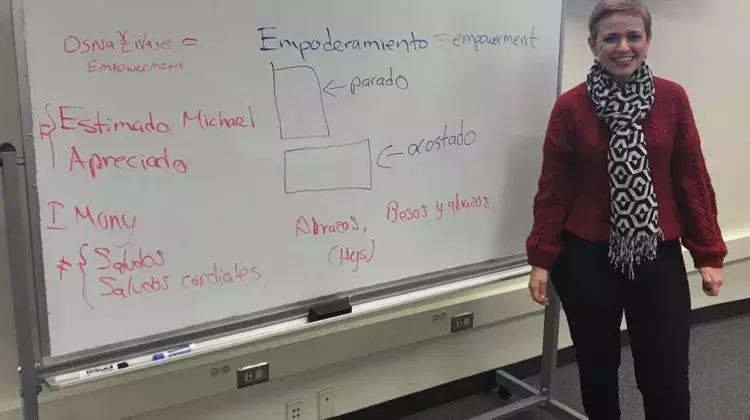 Osnaživaje =
Empowerment
Empoderamiento = empowerment
parado
acostado
Estimado Michael
Apreciado
I Mony
Saludos
Saludos cordiales,
Abrazos,
(Hugs)
Besos y abrazos,